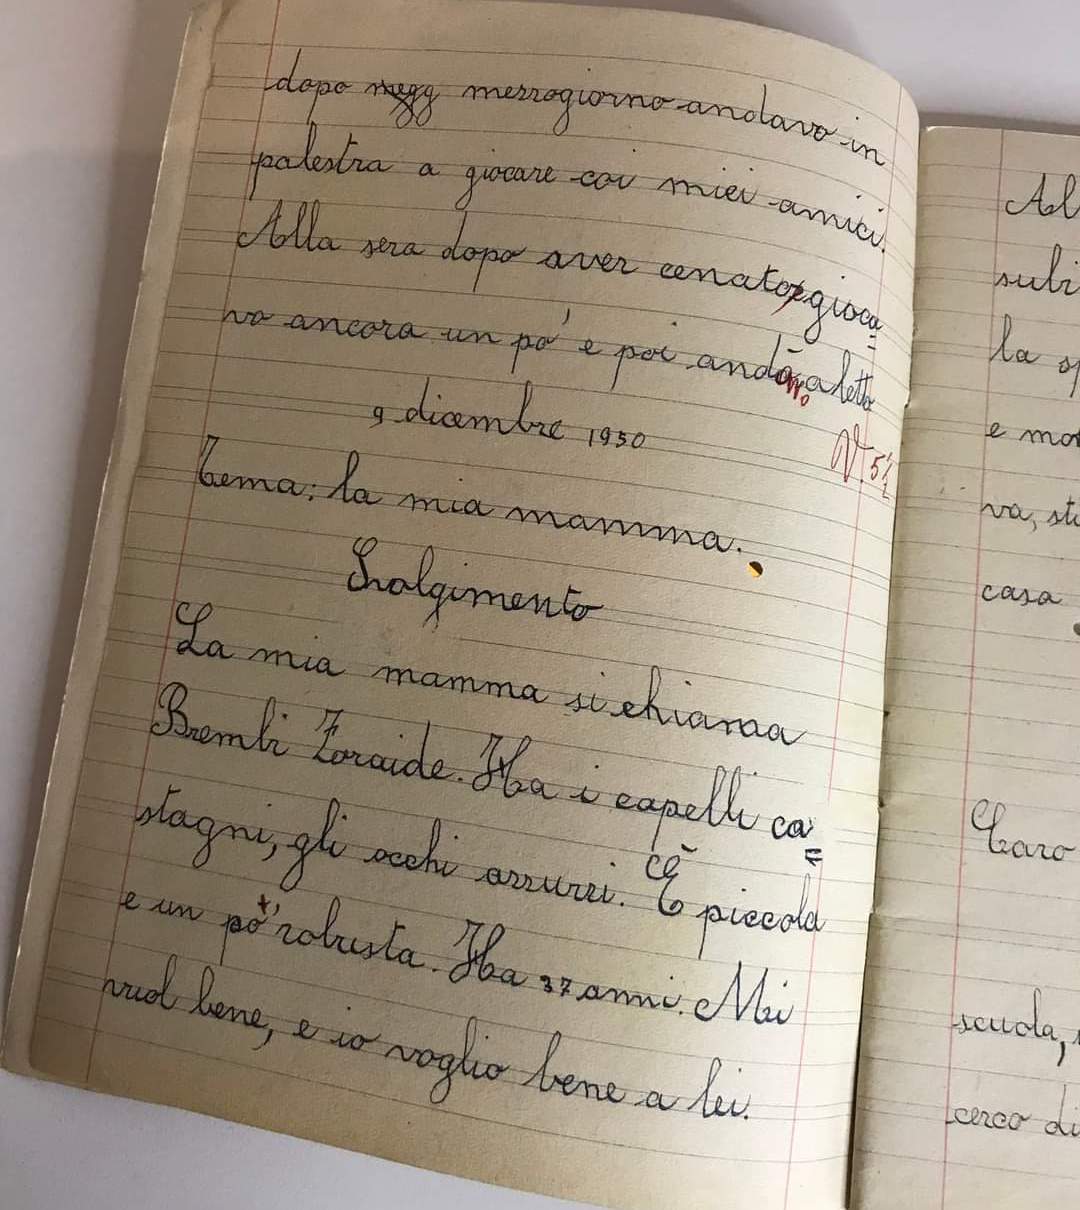 dopo mezzogiorno andavo in
palestra a giocare coi miei amici.
Alla sera dopo aver cenato gioca=
vo ancora un pó e poi andavo a letto
9 dicembre 1950
V. 5½
Tema: la mia mamma.
Svolgimento
La mia mamma si chiama
Brembi Zoraide. Ha i capelli ca=
stagni, gli occhi azzurri. È piccola
e un pó robusta. Ha 37 anni. Mi
vuol bene, e io voglio bene a lei.
Al
subi
la sp
e mo
va, stu
casa
Caro
scuola,
cerco di